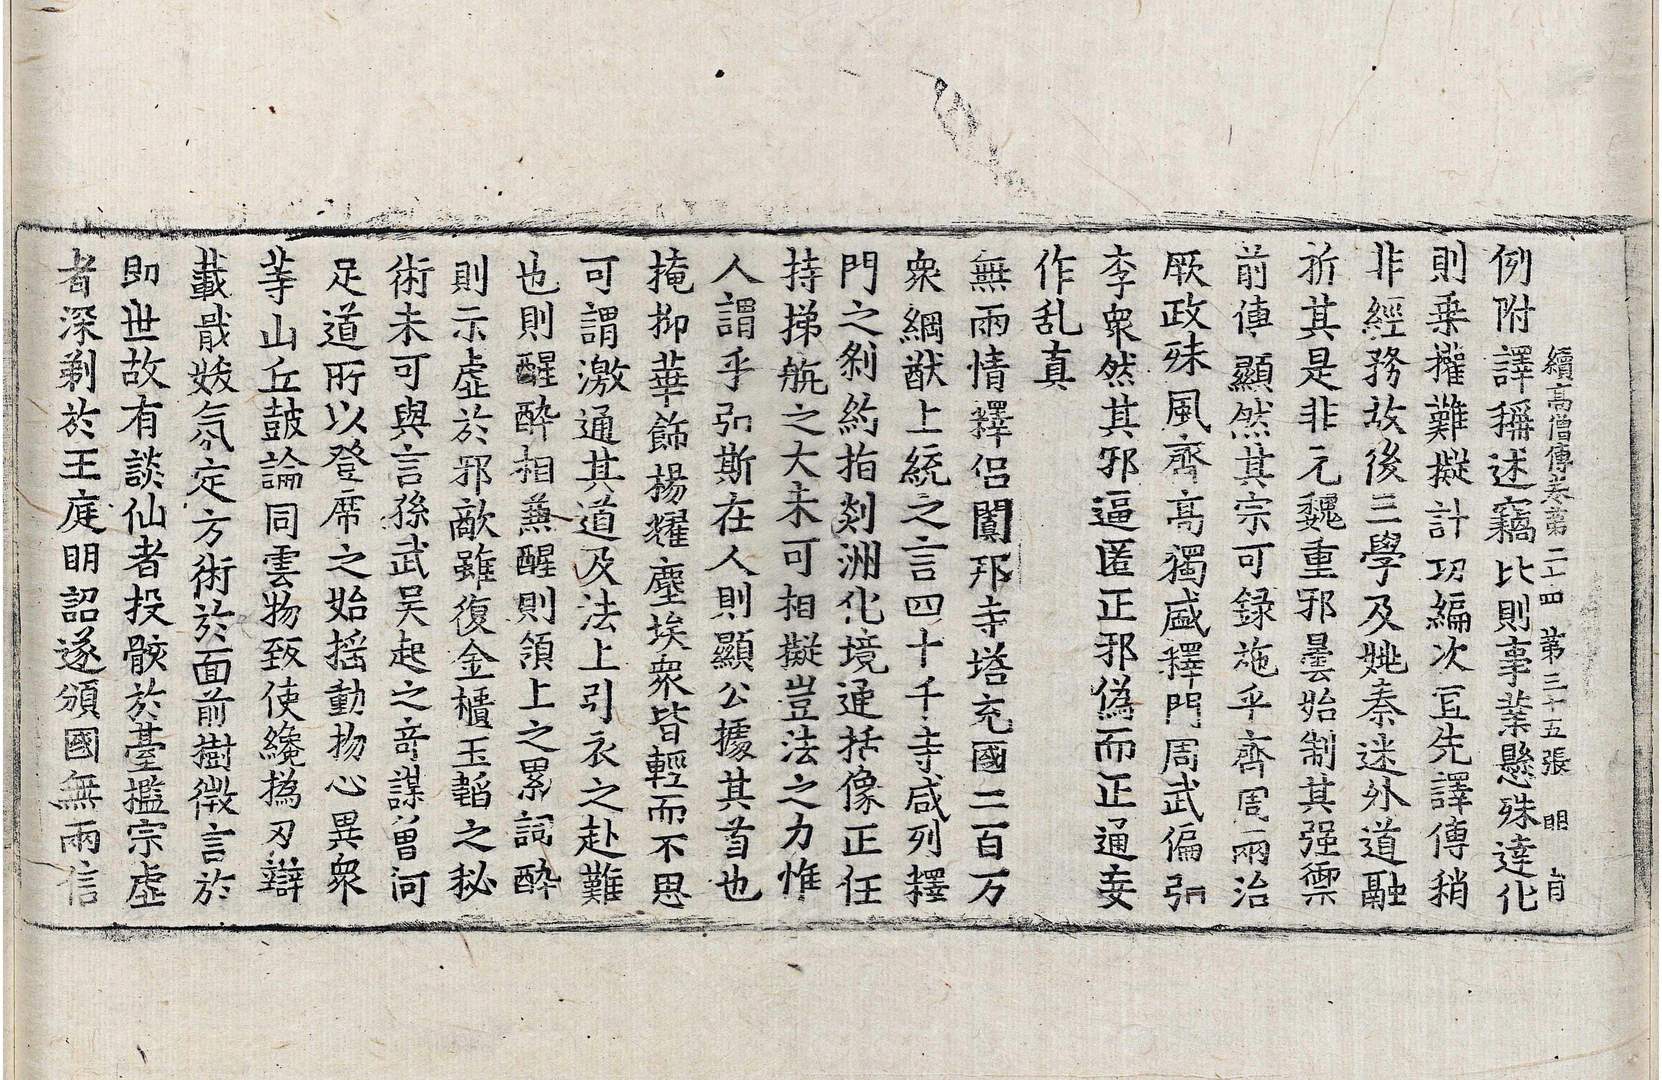 續高僧傳卷第二十四 第三十五張 明 肯
例附譯稱述竊比則事業懸殊達化
則乗攉難擬計功編次冝先譯傳稍
非經務故後三學及姚秦迷外道融
折其是非元魏重邪曇始制其强禦
前傳顯然其宗可録施乎齊周兩治
厥政殊風齊髙獨盛釋門周武偏弘
李衆然其邪逼匿正邪僞而正通妄
作乱真
無兩情釋侣闐邦寺塔充國二百万
衆綱猷上統之言四十千寺咸列釋
門之剎約指剡洲化境通括像正任
持捗航之大未可相擬豈法之力惟
人謂乎弘斯在人則顯公據其首也
掩抑華飾楊耀塵埃衆皆輕而不思
可謂激通其道及法上引衣之赴難
也則醒酔相兼醒則領上之累詞酔
則示虚於邪敵雖復金櫃玉韜之秘
術未可與言孫武吴起之奇謀曽何
足道所以登席之始揺動物心異衆
䓁山丘鼓論同雲物致使纔撝刃辯
載戢妭氛定方術於面前樹微言於
即世故有談仙者投骸於臺檻宗虚
者深剃於王庭明詔遂頒國無兩信